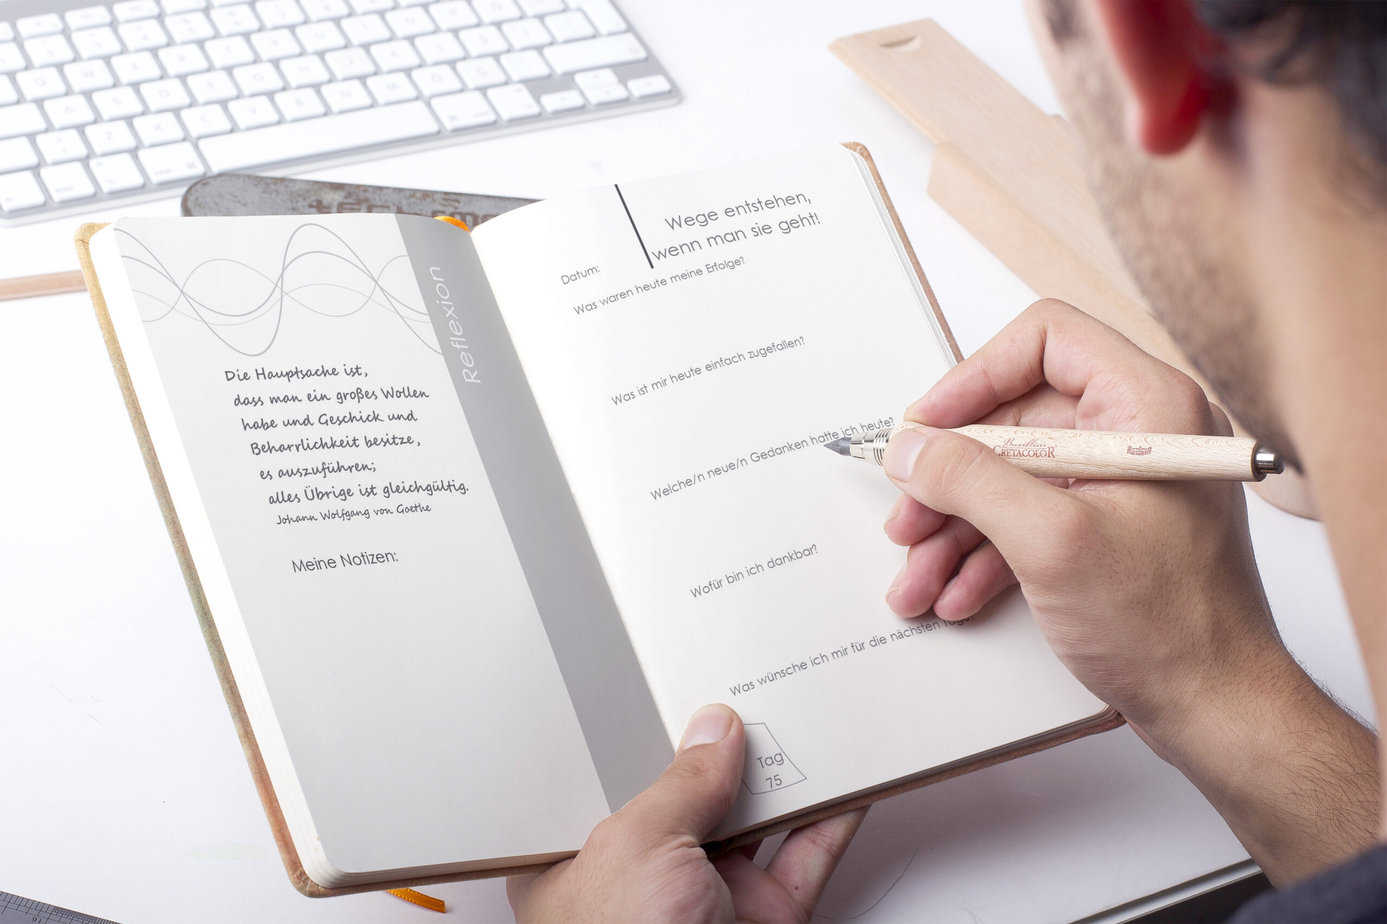 Reflexion
Die Hauptsache ist,
dass man ein großes Wollen
habe und Geschick und
Beharrlichkeit besitze,
es auszuführen;
alles Übrige ist gleichgültig.
Johann Wolfgang von Goethe
Meine Notizen:
Wege entstehen,
wenn man sie geht!
Datum:
Was waren heute meine Erfolge?
Was ist mir heute einfach zugefallen?
Welche/n neue/n Gedanken hatte ich heute?
Wofür bin ich dankbar?
Was wünsche ich mir für die nächsten
Tag
75
CRETACOLOR